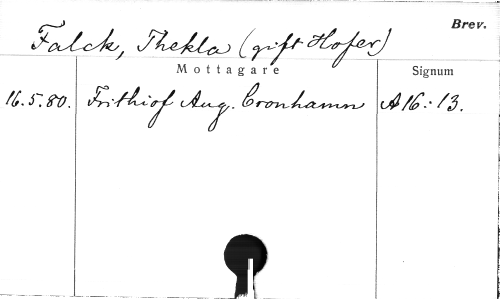 Brev.
Falck, Thekla (gift Hofer)
Mottagare Signum
16.5.80. Frithiof Aug. Cronhamn A16:13.